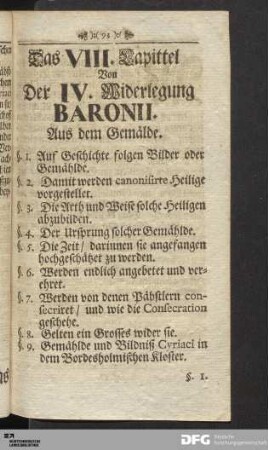 95
Das VIII. Capittel
Von
Der IV. Widerlegung
BARONII.
Aus dem Gemälde.
§. 1. Auf Geschichte folgen Bilder oder
Gemählde.
§. 2. Damit werden canonisirte Heilige
vorgestellet.
§. 3. Die Arth und Weise solche Heiligen
abzubilden.
§. 4. Der Ursprung solcher Gemählde.
§. 5. Die Zeit / darinnen sie angefangen
hochgeschätzet zu werden.
§. 6. Werden endlich angebetet und ver-
ehret.
§. 7. Werden von denen Päbstlern con-
secriret / und wie die Consecration
geschehe.
§. 8. Gelten ein Grosses wider sie.
§. 9. Gemählde und Bildniß Cyriaci in
dem Bordesholmischen Kloster.
§. 1.
DFG